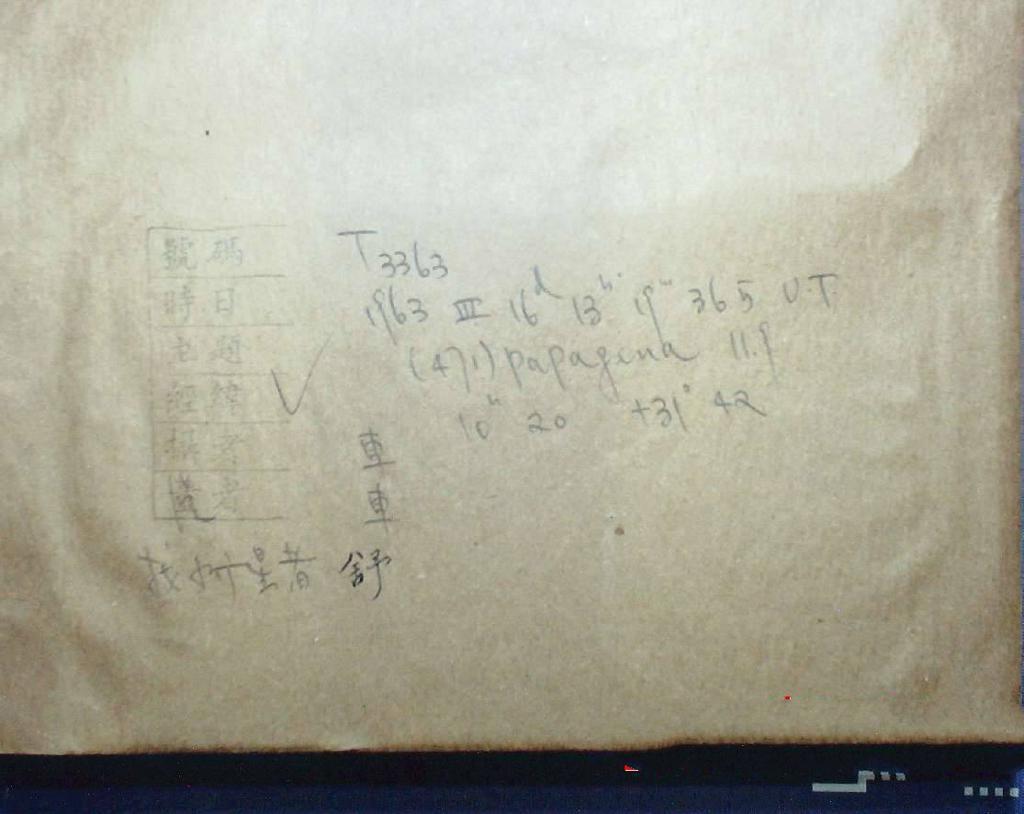 號碼 T3363
時日 1963 III 16d 13h 19m 365 U.T.
題 (471) papagena 11.9
經緯 10h 20 +31° 42
攝者 車
者 車
找新星者 舒